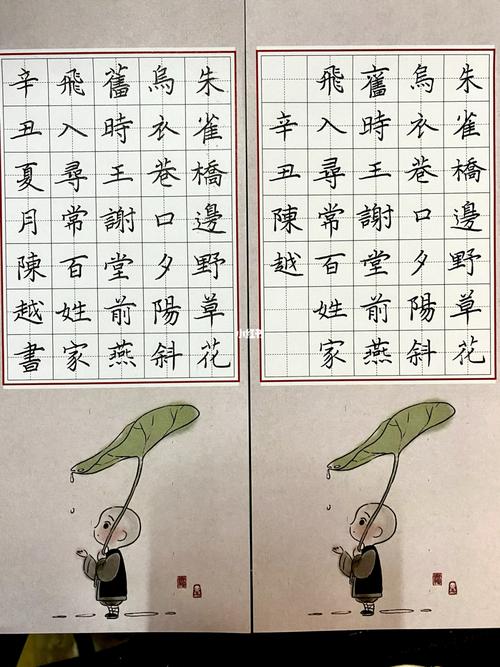 朱雀橋邊野草花
烏衣巷口夕陽斜
舊時王謝堂前燕
飛入尋常百姓家
辛丑陳越
朱雀橋邊野草花
烏衣巷口夕陽斜
舊時王謝堂前燕
飛入尋常百姓家
辛丑夏月陳越書
小红书